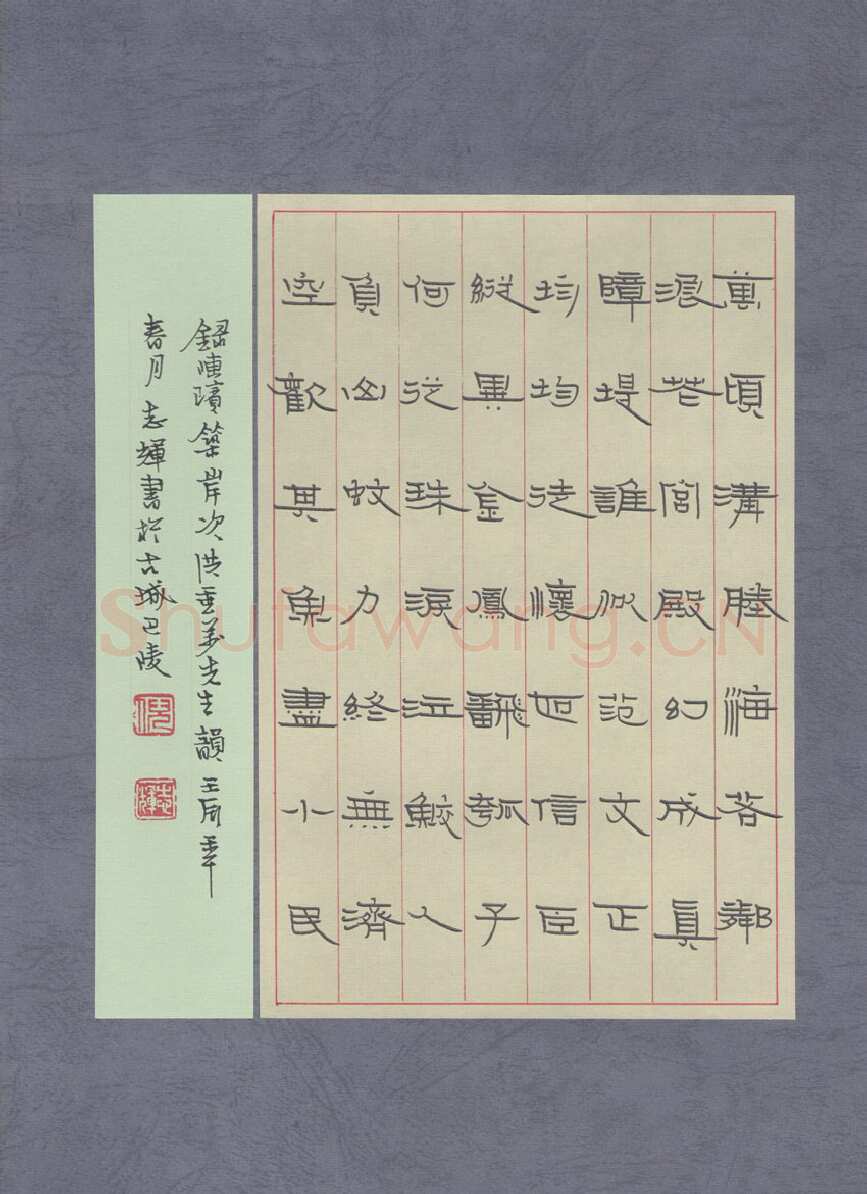 萬頃溝塍海若鄰
浪花宮殿幻成真
障堤誰似范文正
均均徒懷叵信臣
縱異金鳳翻瓠子
何從珠淚泣鮫人
負山蚊力終無濟
空歡其魚盡小民
錄陳璸築岸次洪垂萬先生韻 壬辰年
春月志輝書於古城巴陵
志輝
Shufawang.CN